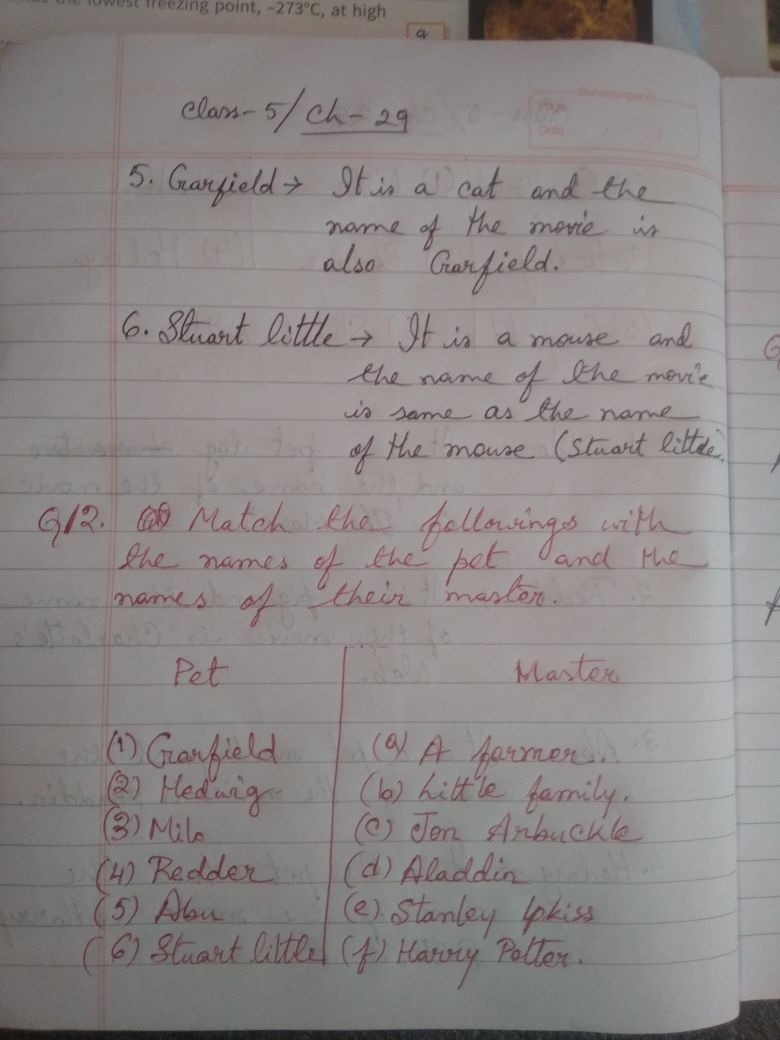 the lowest freezing point, –273°C, at high
a
Class-5/Ch-29
Page
Date
5. Garfield → It is a cat and the
name of the movie is
also Garfield.
6. Stuart little → It is a mouse and
the name of the movie
is same as the name
of the mouse (Stuart little.
Q12. Match the followings with
the names of the pet and the
names of their master.
Pet Master
(1) Garfield (a) A farmer.
(2) Hedwig (b) Little family.
(3) Milo (c) Jon Arbuckle
(4) Redder (d) Aladdin
(5) Abu (e) Stanley Ipkiss
(6) Stuart little (f) Harry Potter.